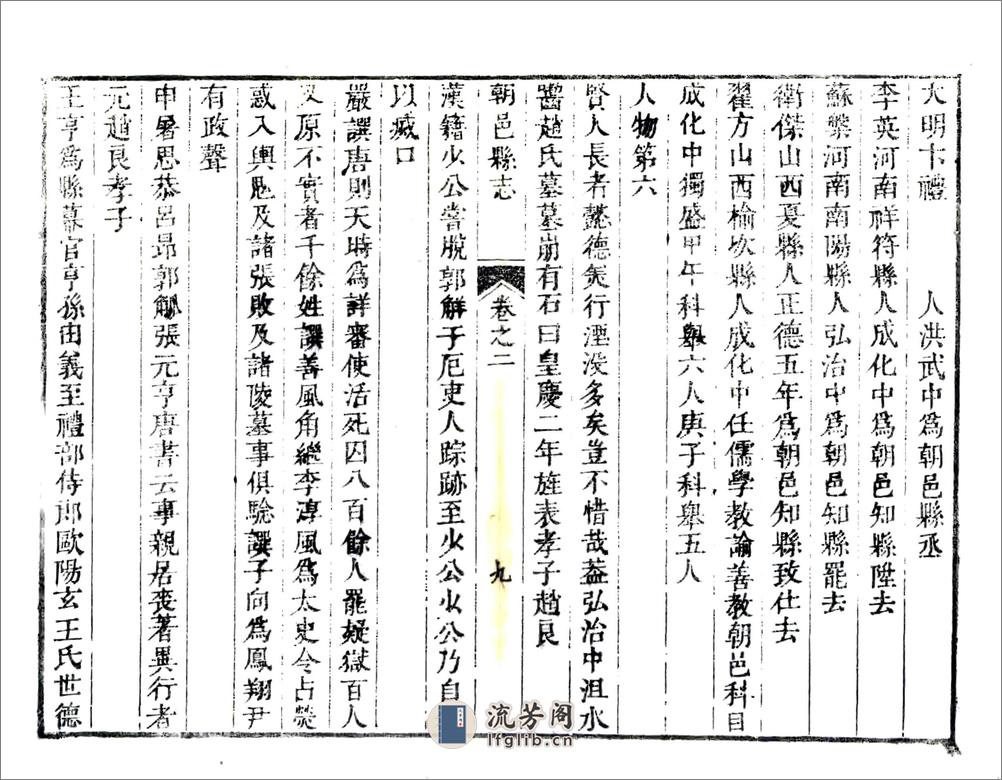 大明卞禮　人洪武中爲朝邑縣丞
李英河南祥符縣人成化中爲朝邑知縣陞去
蘇槃河南南陽縣人弘治中爲朝邑知縣罷去
衛傑山西夏縣人正德五年爲朝邑知縣致仕去
翟方山西榆次縣人成化中任儒學教諭善教朝邑科目
成化中獨盛甲午科舉六人庚子科舉五人
人物第六
賢人長者懿德焭行湮没多矣豈不惜哉葢弘治中沮水
齧趙氏墓墓崩有石曰皇慶二年旌表孝子趙良
朝邑縣志 卷之二 九
漢籍少公嘗脫郭解于厄吏人踪跡至少公少公乃自
以滅口
嚴譔唐則天時爲詳審使活死囚八百餘人罷疑獄百人
又原不實者千餘姓譔善風角繼李淳風爲太史令占熒
惑入輿鬼及諸張敗及諸陵墓事俱騐譔子向爲鳳翔尹
有政聲
申暑思恭呂昂郭觮張元亨唐書云事親居喪著異行者
元趙良孝子
王亨爲縣幕官亨孫由義至禮部侍郎歐陽玄王氏世德
流芳阁
lfglib.cn